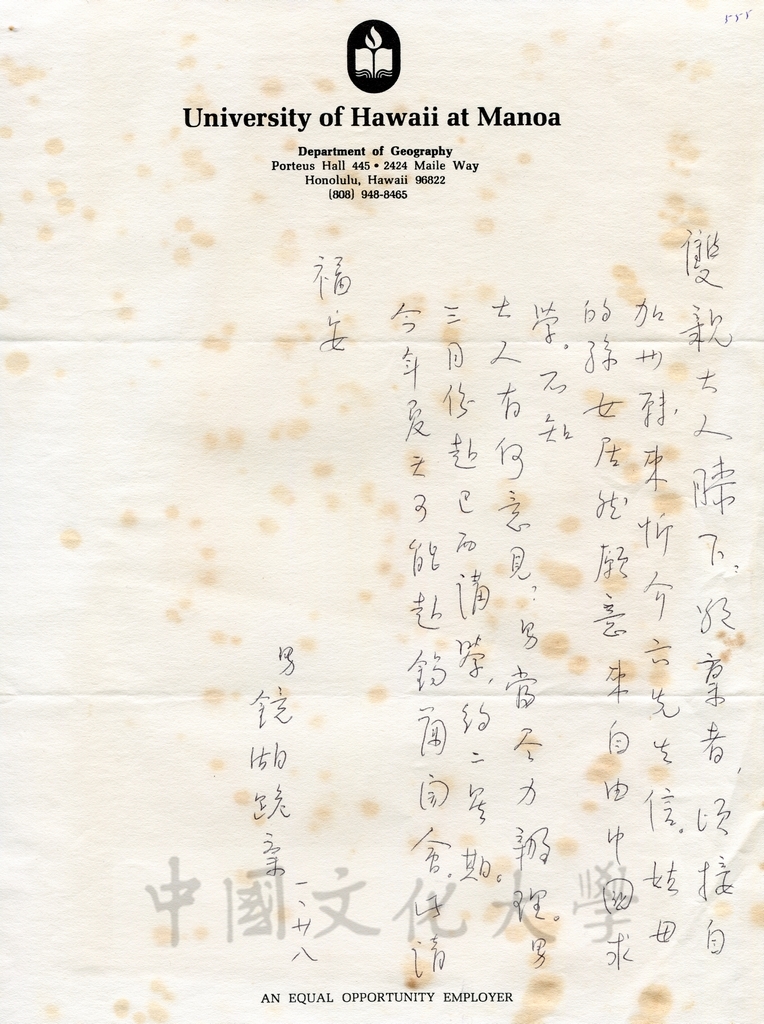 555
University of Hawaii at Manoa
Department of Geography
Porteus Hall 445 • 2424 Maile Way
Honolulu, Hawaii 96822
(808) 948-8465
雙親大人膝下：敬稟者，頃接自
加州轉來忻介六先生信。姑母
的孫女居然願意來自由中國求
學。不知
大人有何意見？男當尽力辦理。男
三月份赴巴西講學，約二星期。
今年夏天可能赴錫蘭開會。此請
福安
男
鏡湖跪稟
一、廿八
中國文化大學
AN EQUAL OPPORTUNITY EMPLOYER